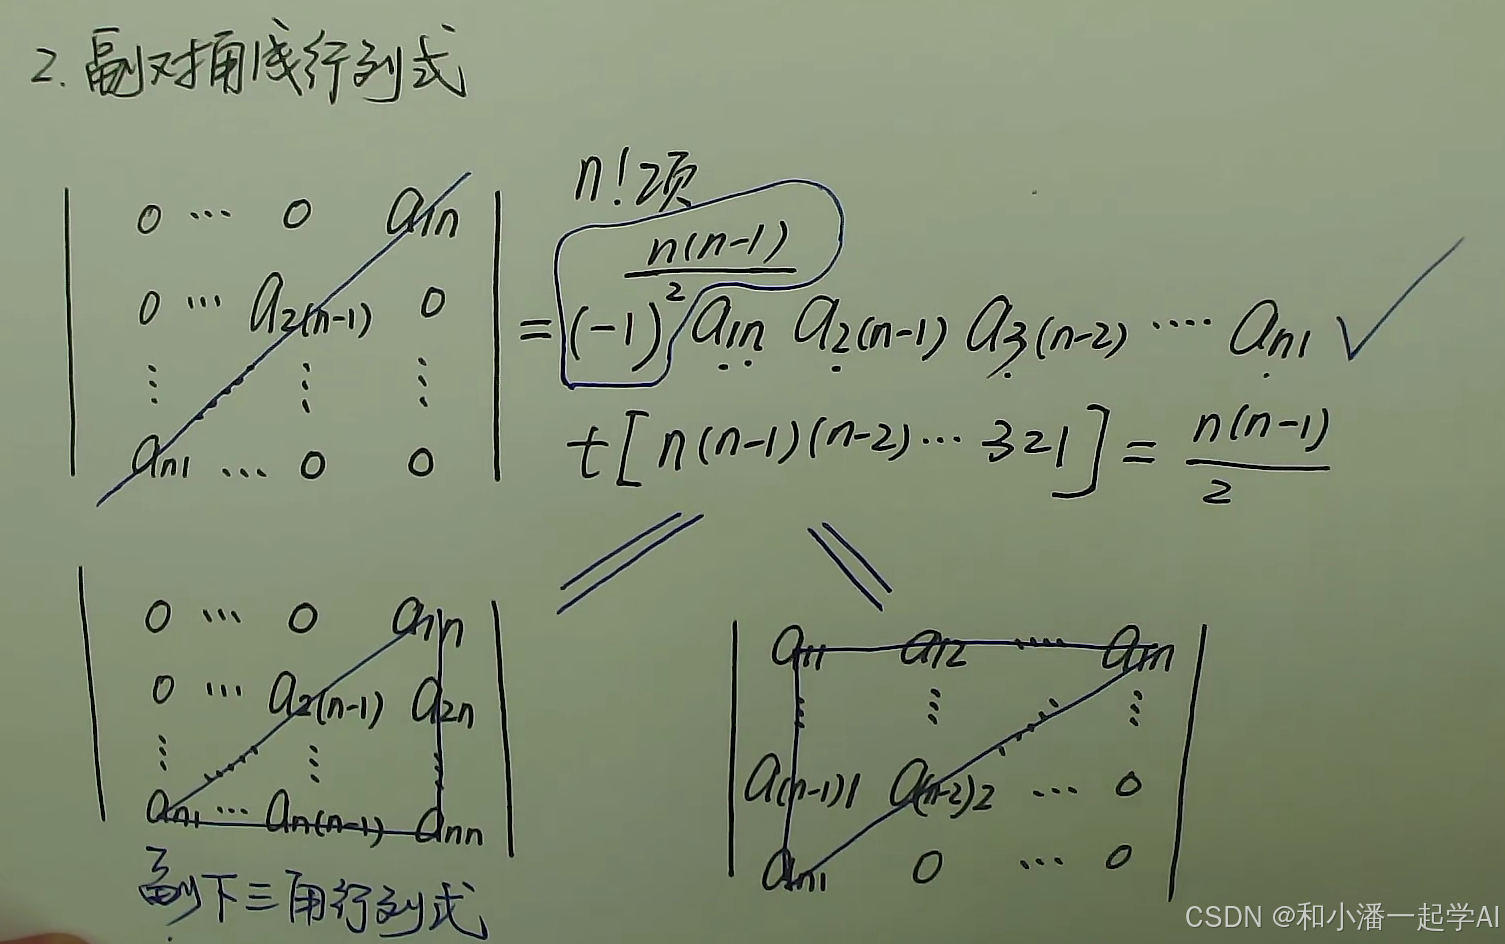 2. 副对角线行列式
n!项
| 0 ⋯ 0 a₁ₙ |
| 0 ⋯ a₂₍ₙ₋₁₎ 0 |
| ⋮ ⋮ ⋮ |
| aₙ₁ ⋯ 0 0 |
= (-1)^(n(n-1)/2) a₁ₙ a₂₍ₙ₋₁₎ a₃₍ₙ₋₂₎ ⋯ aₙ₁ ✓
t[n(n-1)(n-2)⋯321] = n(n-1)/2
| 0 ⋯ 0 a₁ₙ |
| 0 ⋯ a₂₍ₙ₋₁₎ a₂ₙ |
| ⋮ ⋮ ⋮ |
| aₙ₁ ⋯ aₙ₍ₙ₋₁₎ aₙₙ |
副下三角行列式
| a₁₁ a₁₂ ⋯ a₁ₙ |
| ⋮ ⋮ ⋮ |
| a₍ₙ₋₁₎₁ a₍ₙ₋₂₎₂ ⋯ 0 |
| aₙ₁ 0 ⋯ 0 |
CSDN @和小潘一起学AI